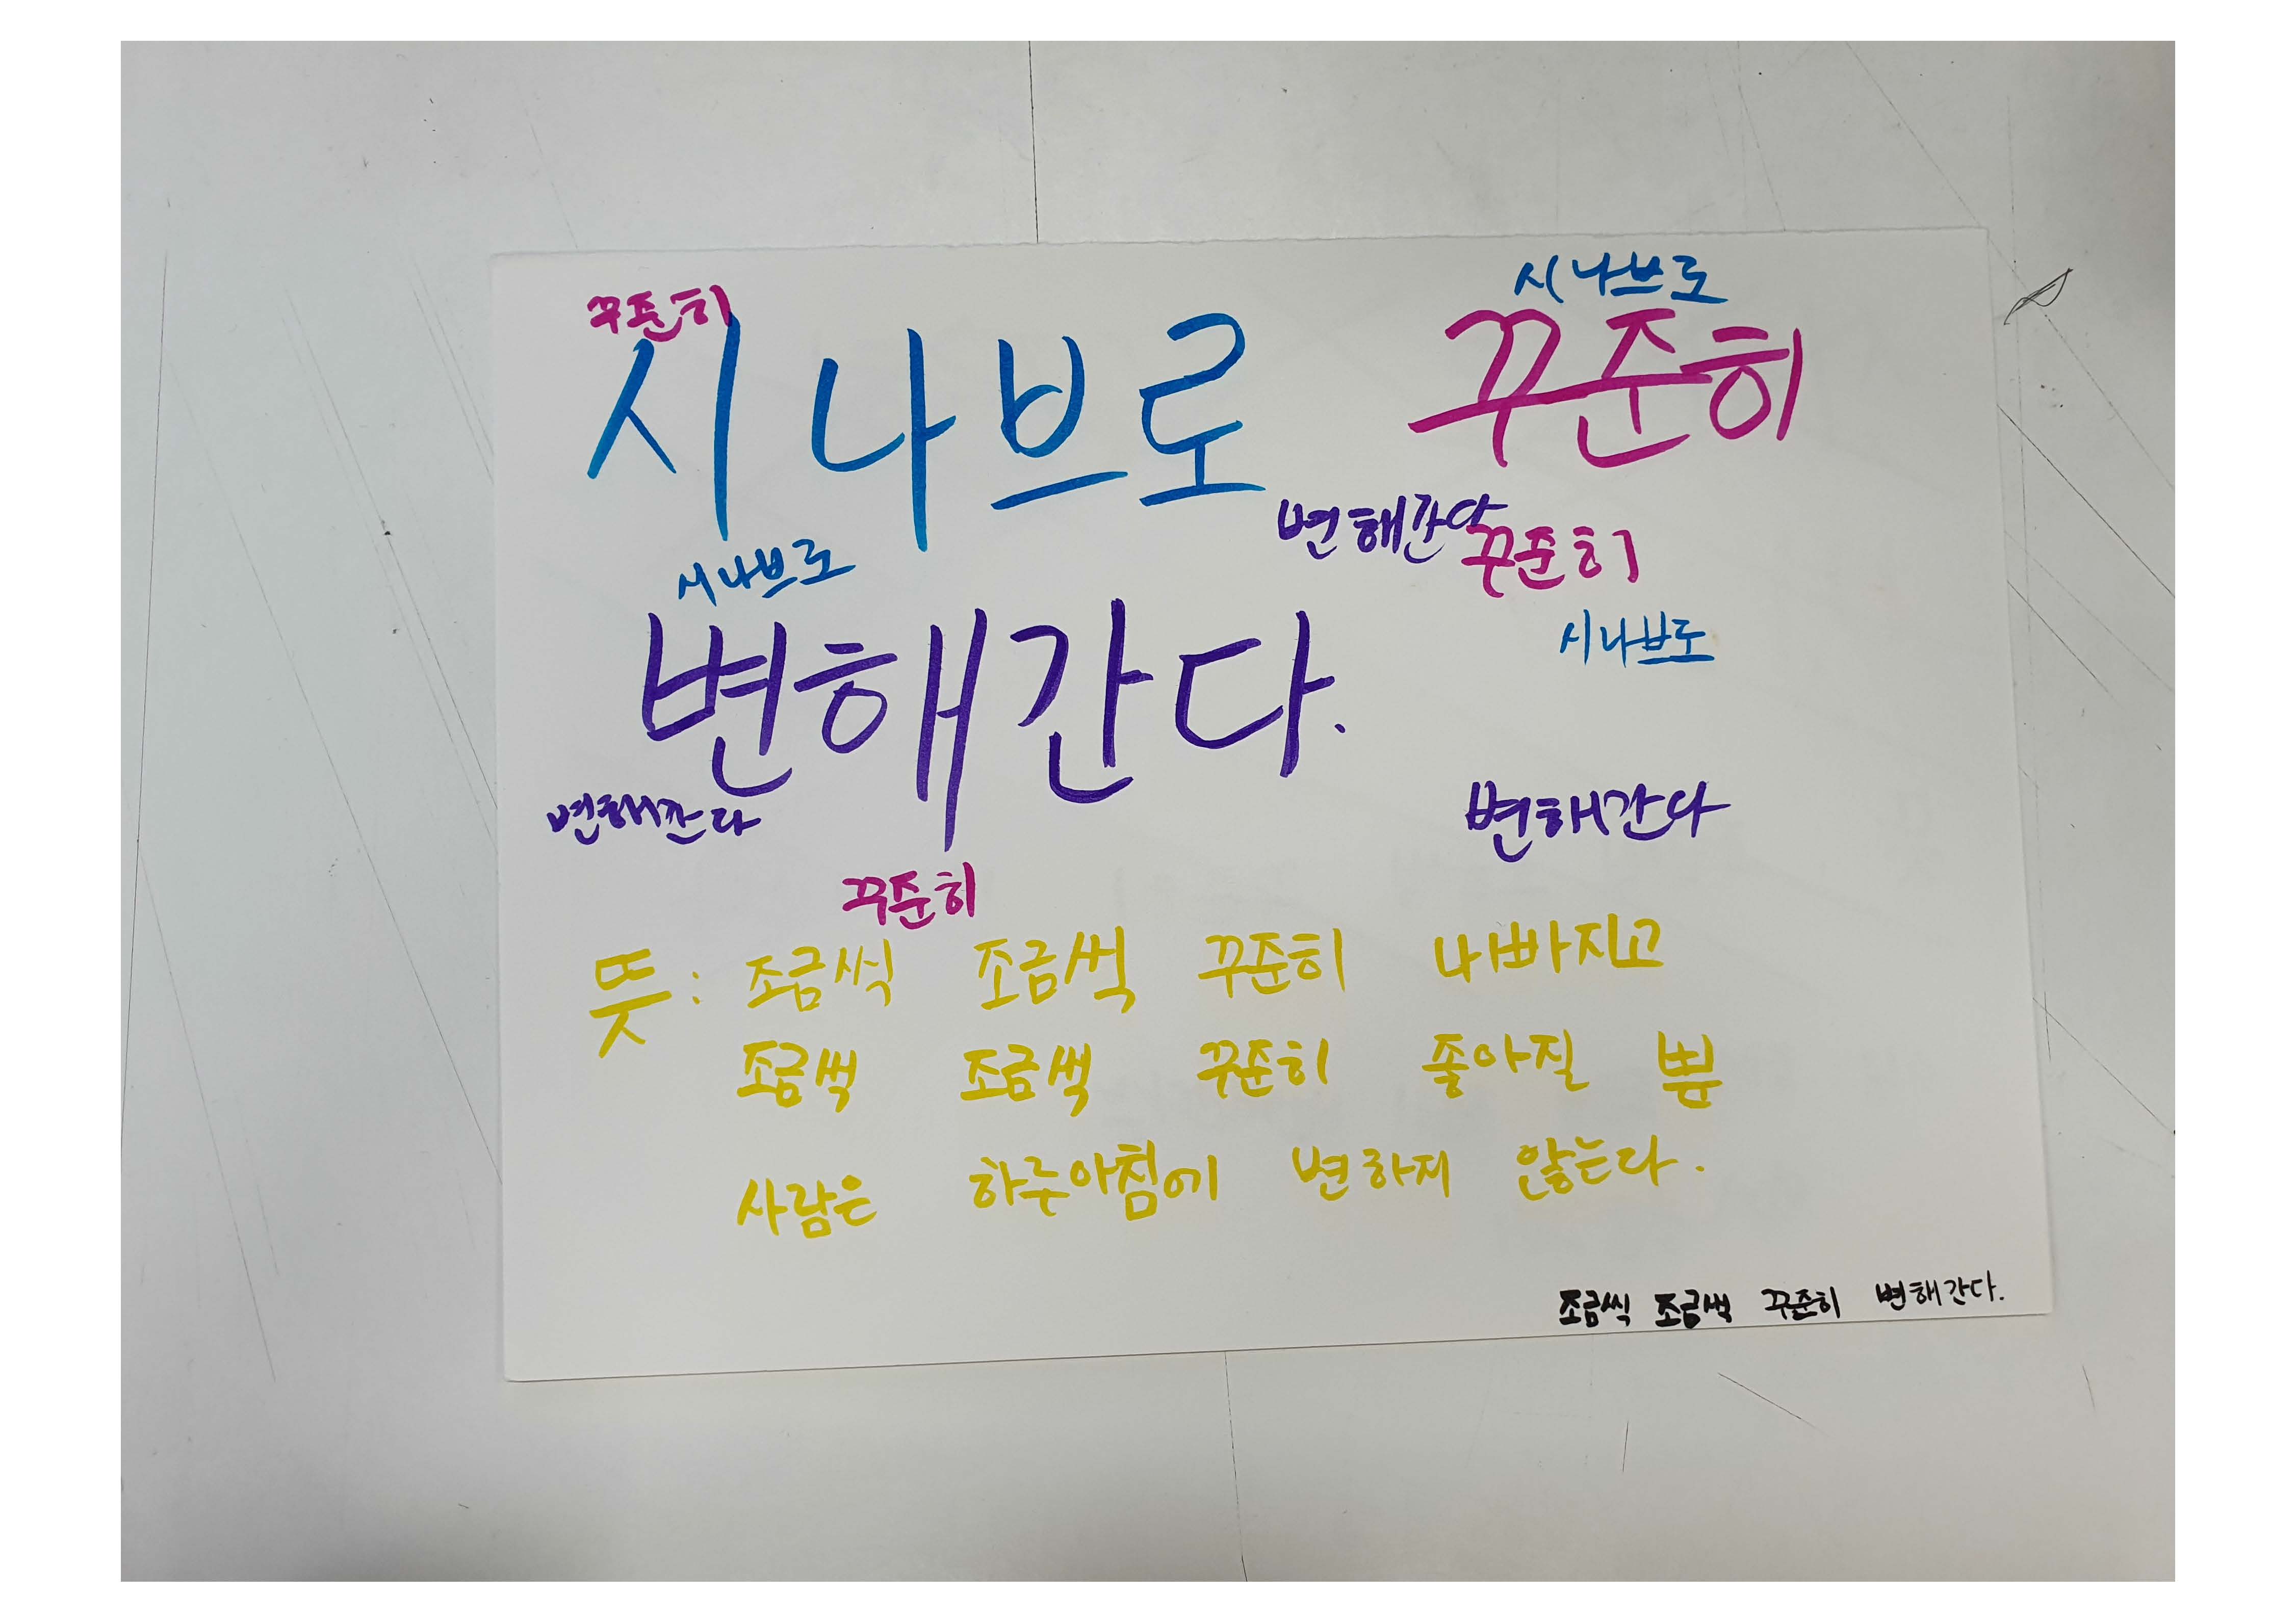 시나브로
꾸준히
시나브로 꾸준히
변해간다
시나브로
꾸준히
변해간다.
시나브로
변해간다
변해간다
꾸준히
뜻 : 조금씩 조금씩 꾸준히 나빠지고
조금씩 조금씩 꾸준히 좋아질 뿐
사람은 하루아침에 변하지 않는다.
조금씩 조금씩 꾸준히 변해간다.